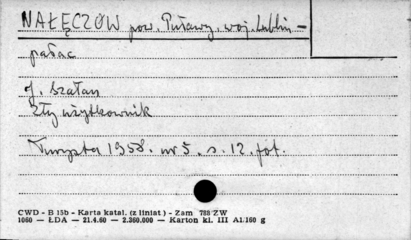 NAŁĘCZÓW pow. Puławy, woj. Lublin –
pałac
J. Szałan
Zły użytkownik
Turysta 1958. nr 5. s. 12. fot.
CWD - B 15b - Karta katal. (z liniat) - Zam 788 ZW
1060 — ŁDA — 21.4.60 — 2.360.000 — Karton kl. III A1/160 g